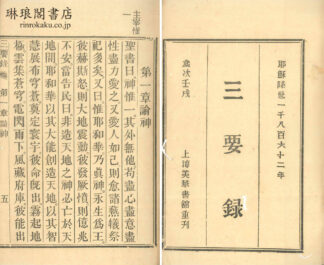 琳琅閣書店
rinrokaku.co.jp
耶穌降世一千八百六十二年
三要錄
歲次壬戌
上海美華書館重刊
主宰惟一
第一章論神
聖書曰神惟一其外無他茍盡心盡意盡
性盡力愛之又愛人如己則愈諸燕犧祭
祀多矣又曰惟耶和華乃眞神永生爲王
彼赫斯怒則大地震動彼發厥憤則億兆
不安當告民曰非造天地之神必亡於天
地間耶和華以其大能創造天地以其智
慧展布穹蒼奠定寰宇彼命旣出雲起地
極雲集蒼穹電閃雨下風藏府庫彼能出
三要錄
第一章論神
五